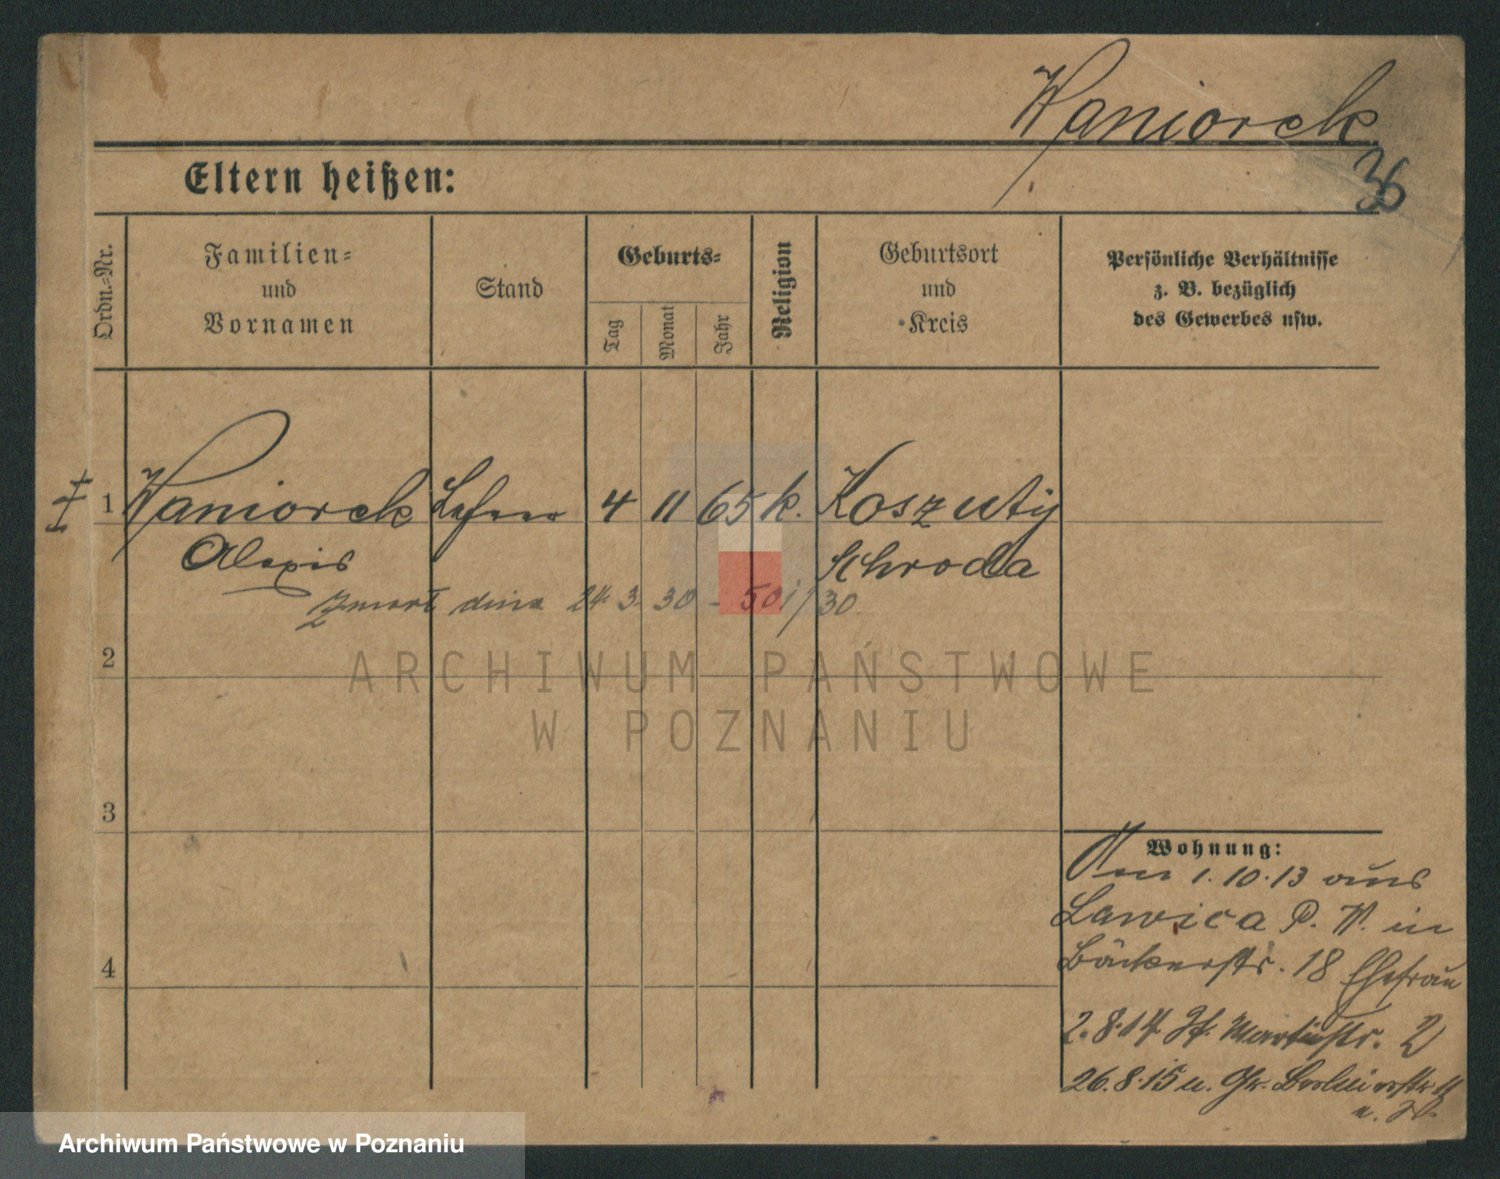 Waniorek
36
Eltern heißen:
Ordn.=Nr.
Familien=
und
Vornamen
Stand
Geburts=
Tag
Monat
Jahr
Religion
Geburtsort
und
Kreis
Persönliche Verhältnisse
z. B. bezüglich
des Gewerbes usw.
1 Waniorek 4 11 65 k. Koszuty
Alexis Schroda
zmarł dnia 24. 3. 30 - 501/30
2
ARCHIWUM PAŃSTWOWE
W POZNANIU
3
Wohnung:
1.10.13 aus
Lawica P. W. in
Bäckerstr. 18 Ehefrau
2.8.14 Martinstr. 2
4
26.8.15 u. Gr. Berlinerstr.
Archiwum Państwowe w Poznaniu